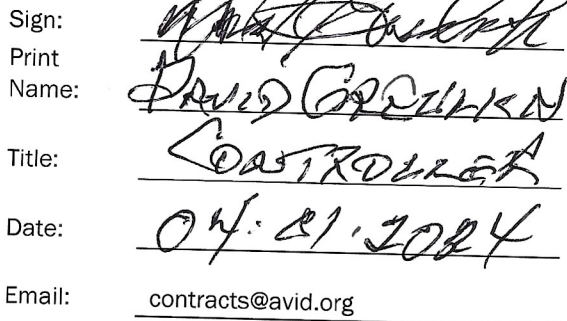 Sign:
Print
Name: DAVID
Title: CONTROLLER
Date: 04.21.2024
Email: contracts@avid.org